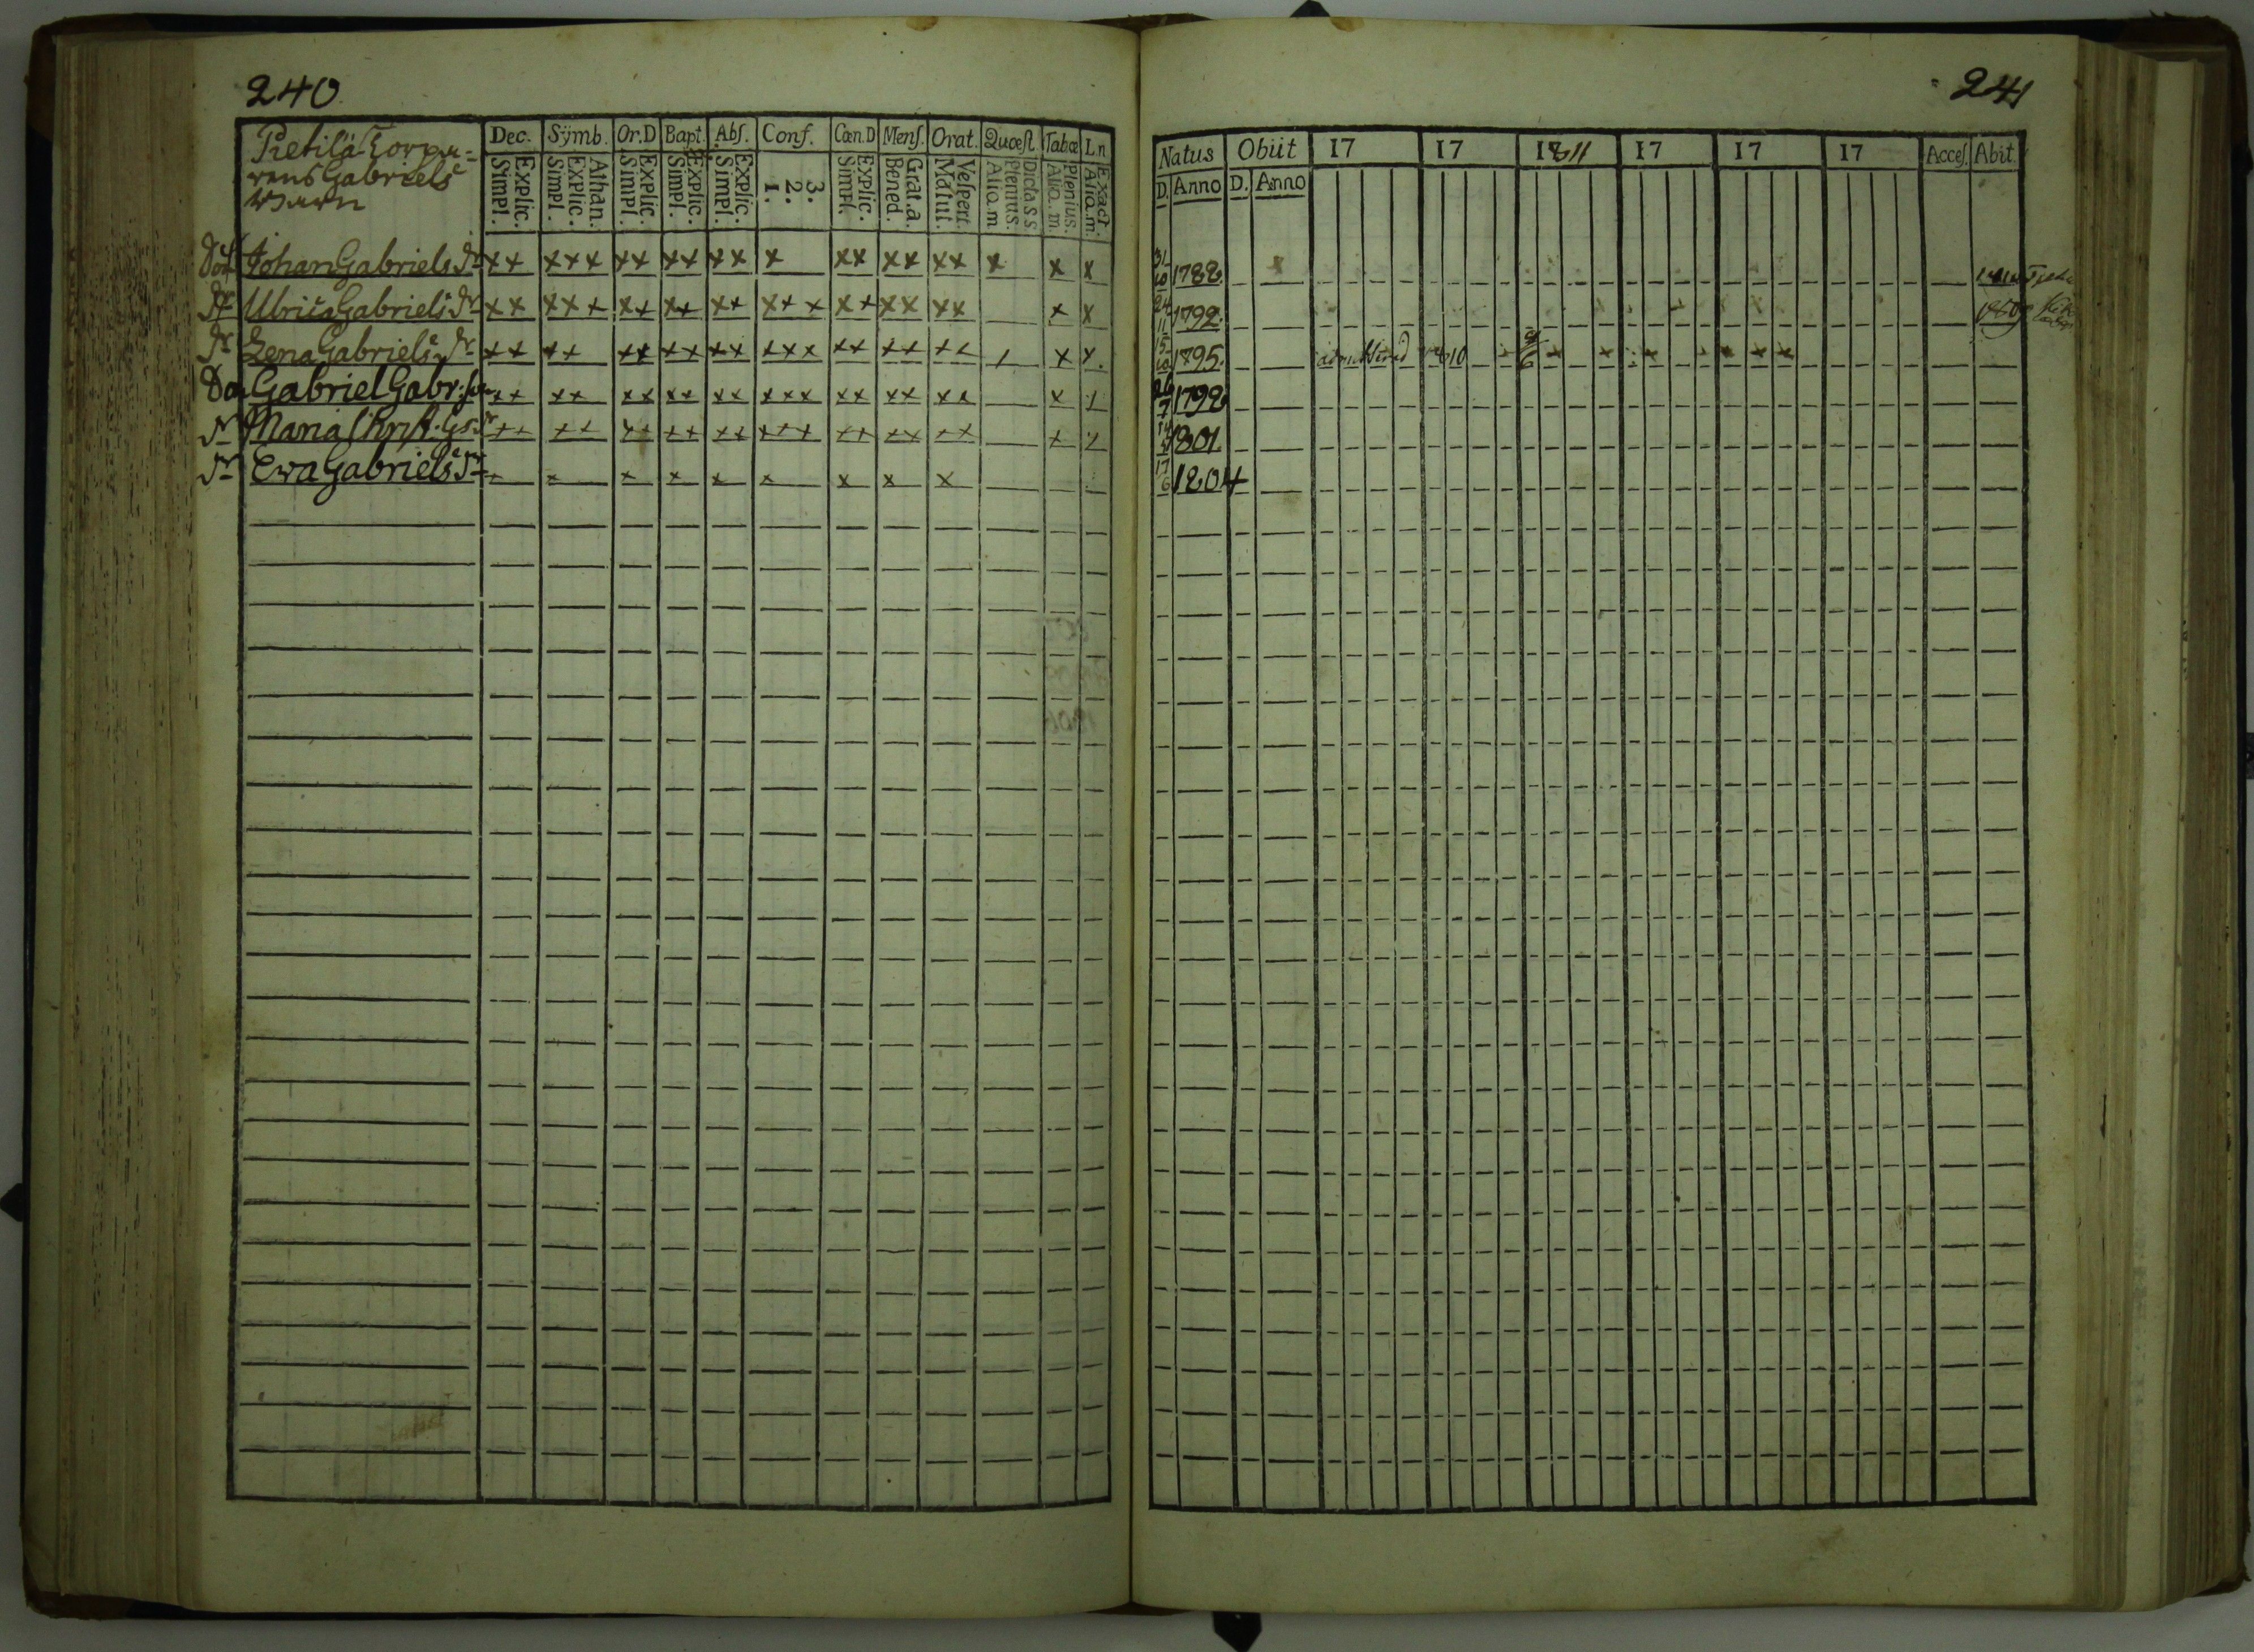 240
Pietilä Korpu-
rens Gabriels
Barn
Dec. Sÿmb. Or.D Bapt. Abſ. Conf. Cæn.D Menſ. Orat. Quæſt Tabæ Ln
Explic. Simpl. Athan. Explic. Simpl. Explic. Simpl. Explic. Simpl. Explic. Simpl. 3. 2. 1. Explic. Simpl. Grat.a. Bened. Veſpert. Matut. Dicta S S Plenius. Aliq.m Plenius. Aliq.m Exact. Aliq.m.
Son Johan Gabriels Sn x x x x x x x x x x x x x x x x x x x x x
Dr Ulrica Gabriels Dr x x x x x x x x x x x x x x x x x x x x x x
Dr Lena Gabriels Dr x x x x x x x x x x x x x x x x x x x x x x
Son Gabriel Gabr:son x x x x x x x x x x x x x x x x x x x x x
Dr Maria Christ. Gs: Dr x x x x x x x x x x x x x x x x x x x x x
Dr Eva Gabriels Dr x x x x x x x x x
241
Natus Obiit 17 17 1811 17 17 17 Acceſ. Abit.
D. Anno D. Anno
31/10 1788. x
24/11 1792. 1809
15/10 1795. admitterad 1810 x x x x x x x
26/7 1798
14 1801.
17/6 1804